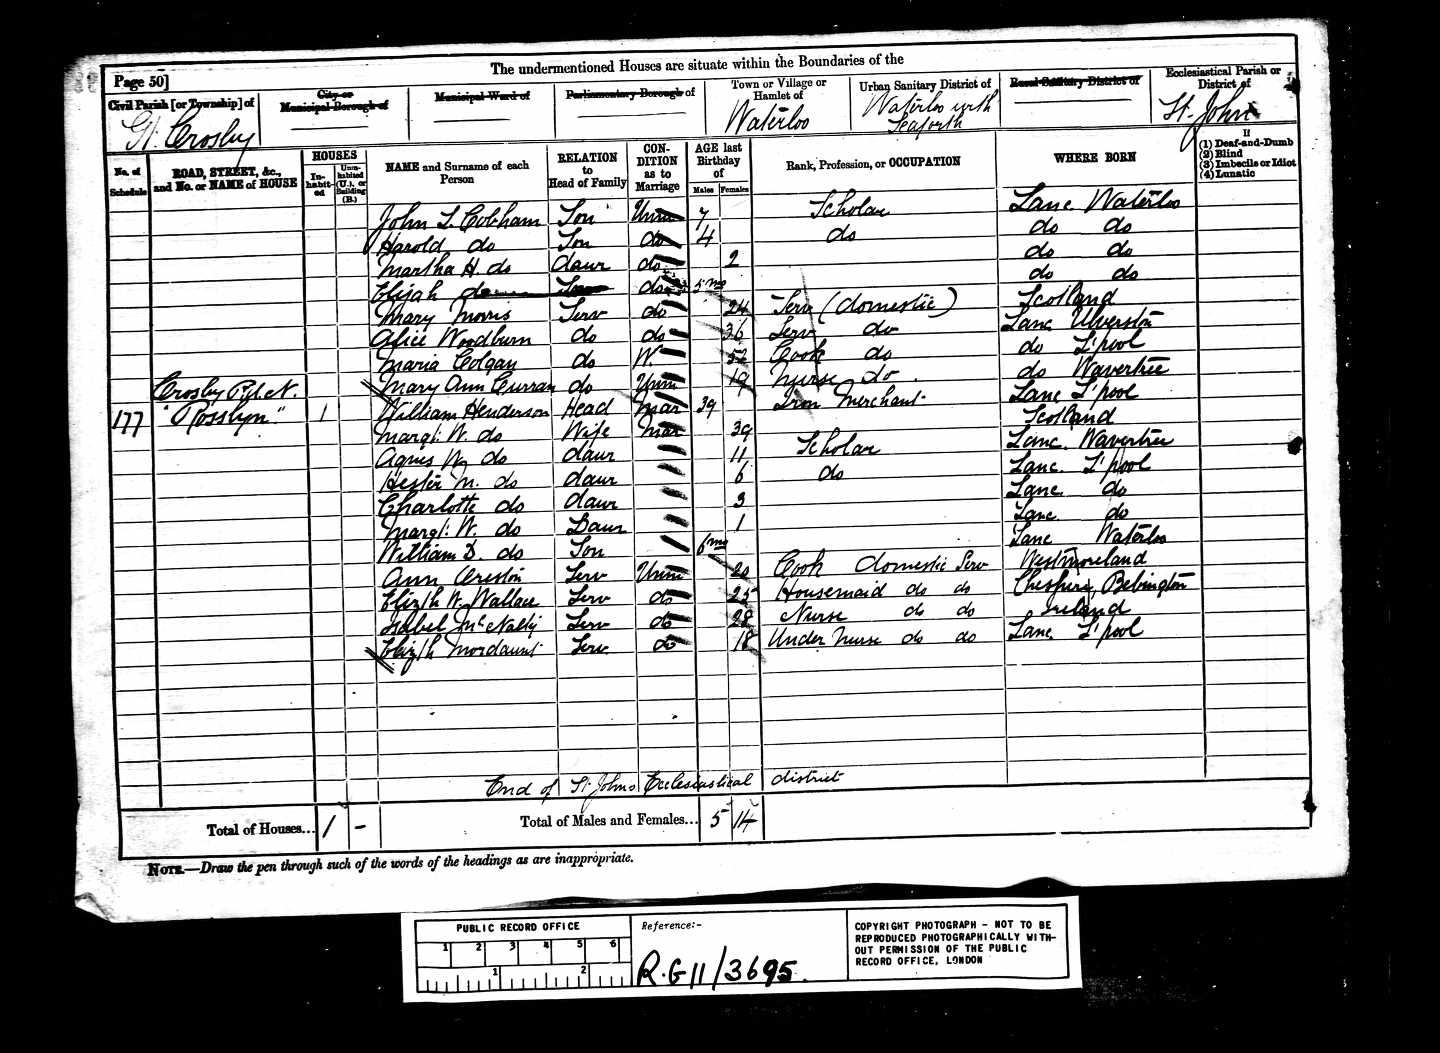 The undermentioned Houses are situate within the Boundaries of the
Page 50]
Civil Parish [or Township] of
Gt. Crosby
City or Municipal Borough of
Municipal Ward of
Parliamentary Borough of
Town or Village or Hamlet of
Waterloo
Urban Sanitary District of
Waterloo with Seaforth
Rural Sanitary District of
Ecclesiastical Parish or District of
St. John
No. of Schedule
ROAD, STREET, &c., and No. or NAME of HOUSE
HOUSES
In-habit-ed
Unin-habited (U.), or Building (B.)
NAME and Surname of each Person
RELATION to Head of Family
CON-DITION as to Marriage
AGE last Birthday of
Males Females
Rank, Profession, or OCCUPATION
WHERE BORN
If
(1) Deaf-and-Dumb
(2) Blind
(3) Imbecile or Idiot
(4) Lunatic
John L. Cobham Son Unm 7 Scholar Lanc. Waterloo
Harold do Son do 4 do do do
Martha H. do daur do 2 do do
Elijah do Son do 5 mo do do
Mary Morris Serv do 24 Serv (domestic) Scotland
Alice Woodburn do do 36 Serv do Lanc Ulverston
Maria Colgan do W. 52 Cook do do L'pool
Mary Ann Curran do Unm 19 Nurse do. do Wavertree
Crosby Rd. N.
177 "Rosslyn" 1 William Henderson Head Mar 39 Iron Merchant Lanc L'pool
Margt. W. do Wife Mar 39 Scotland
Agnes W. do daur 11 Scholar Lanc. Wavertree
Hester M. do daur 6 do Lanc. L'pool
Charlotte do daur 3 Lanc. do
Margt. W. do Daur 1 Lanc. do
William D. do Son 6 mo Lanc Waterloo
Ann Serv Unm 20 Cook domestic Serv Westmoreland
Elizth W. Wallace Serv do 25 Housemaid do do Cheshire, Bebington
Isabel McNally Serv do 28 Nurse do do Ireland
Elizth Mordaunt Serv do 18 Under Nurse do do Lanc L'pool
End of St Johns Ecclesiastical district
Total of Houses... 1 - Total of Males and Females... 5 14
NOTE.—Draw the pen through such of the words of the headings as are inappropriate.
PUBLIC RECORD OFFICE
1 2 3 4 5 6
1 2
Reference:-
R.G 11/3695.
COPYRIGHT PHOTOGRAPH - NOT TO BE
REPRODUCED PHOTOGRAPHICALLY WITH-
OUT PERMISSION OF THE PUBLIC
RECORD OFFICE, LONDON